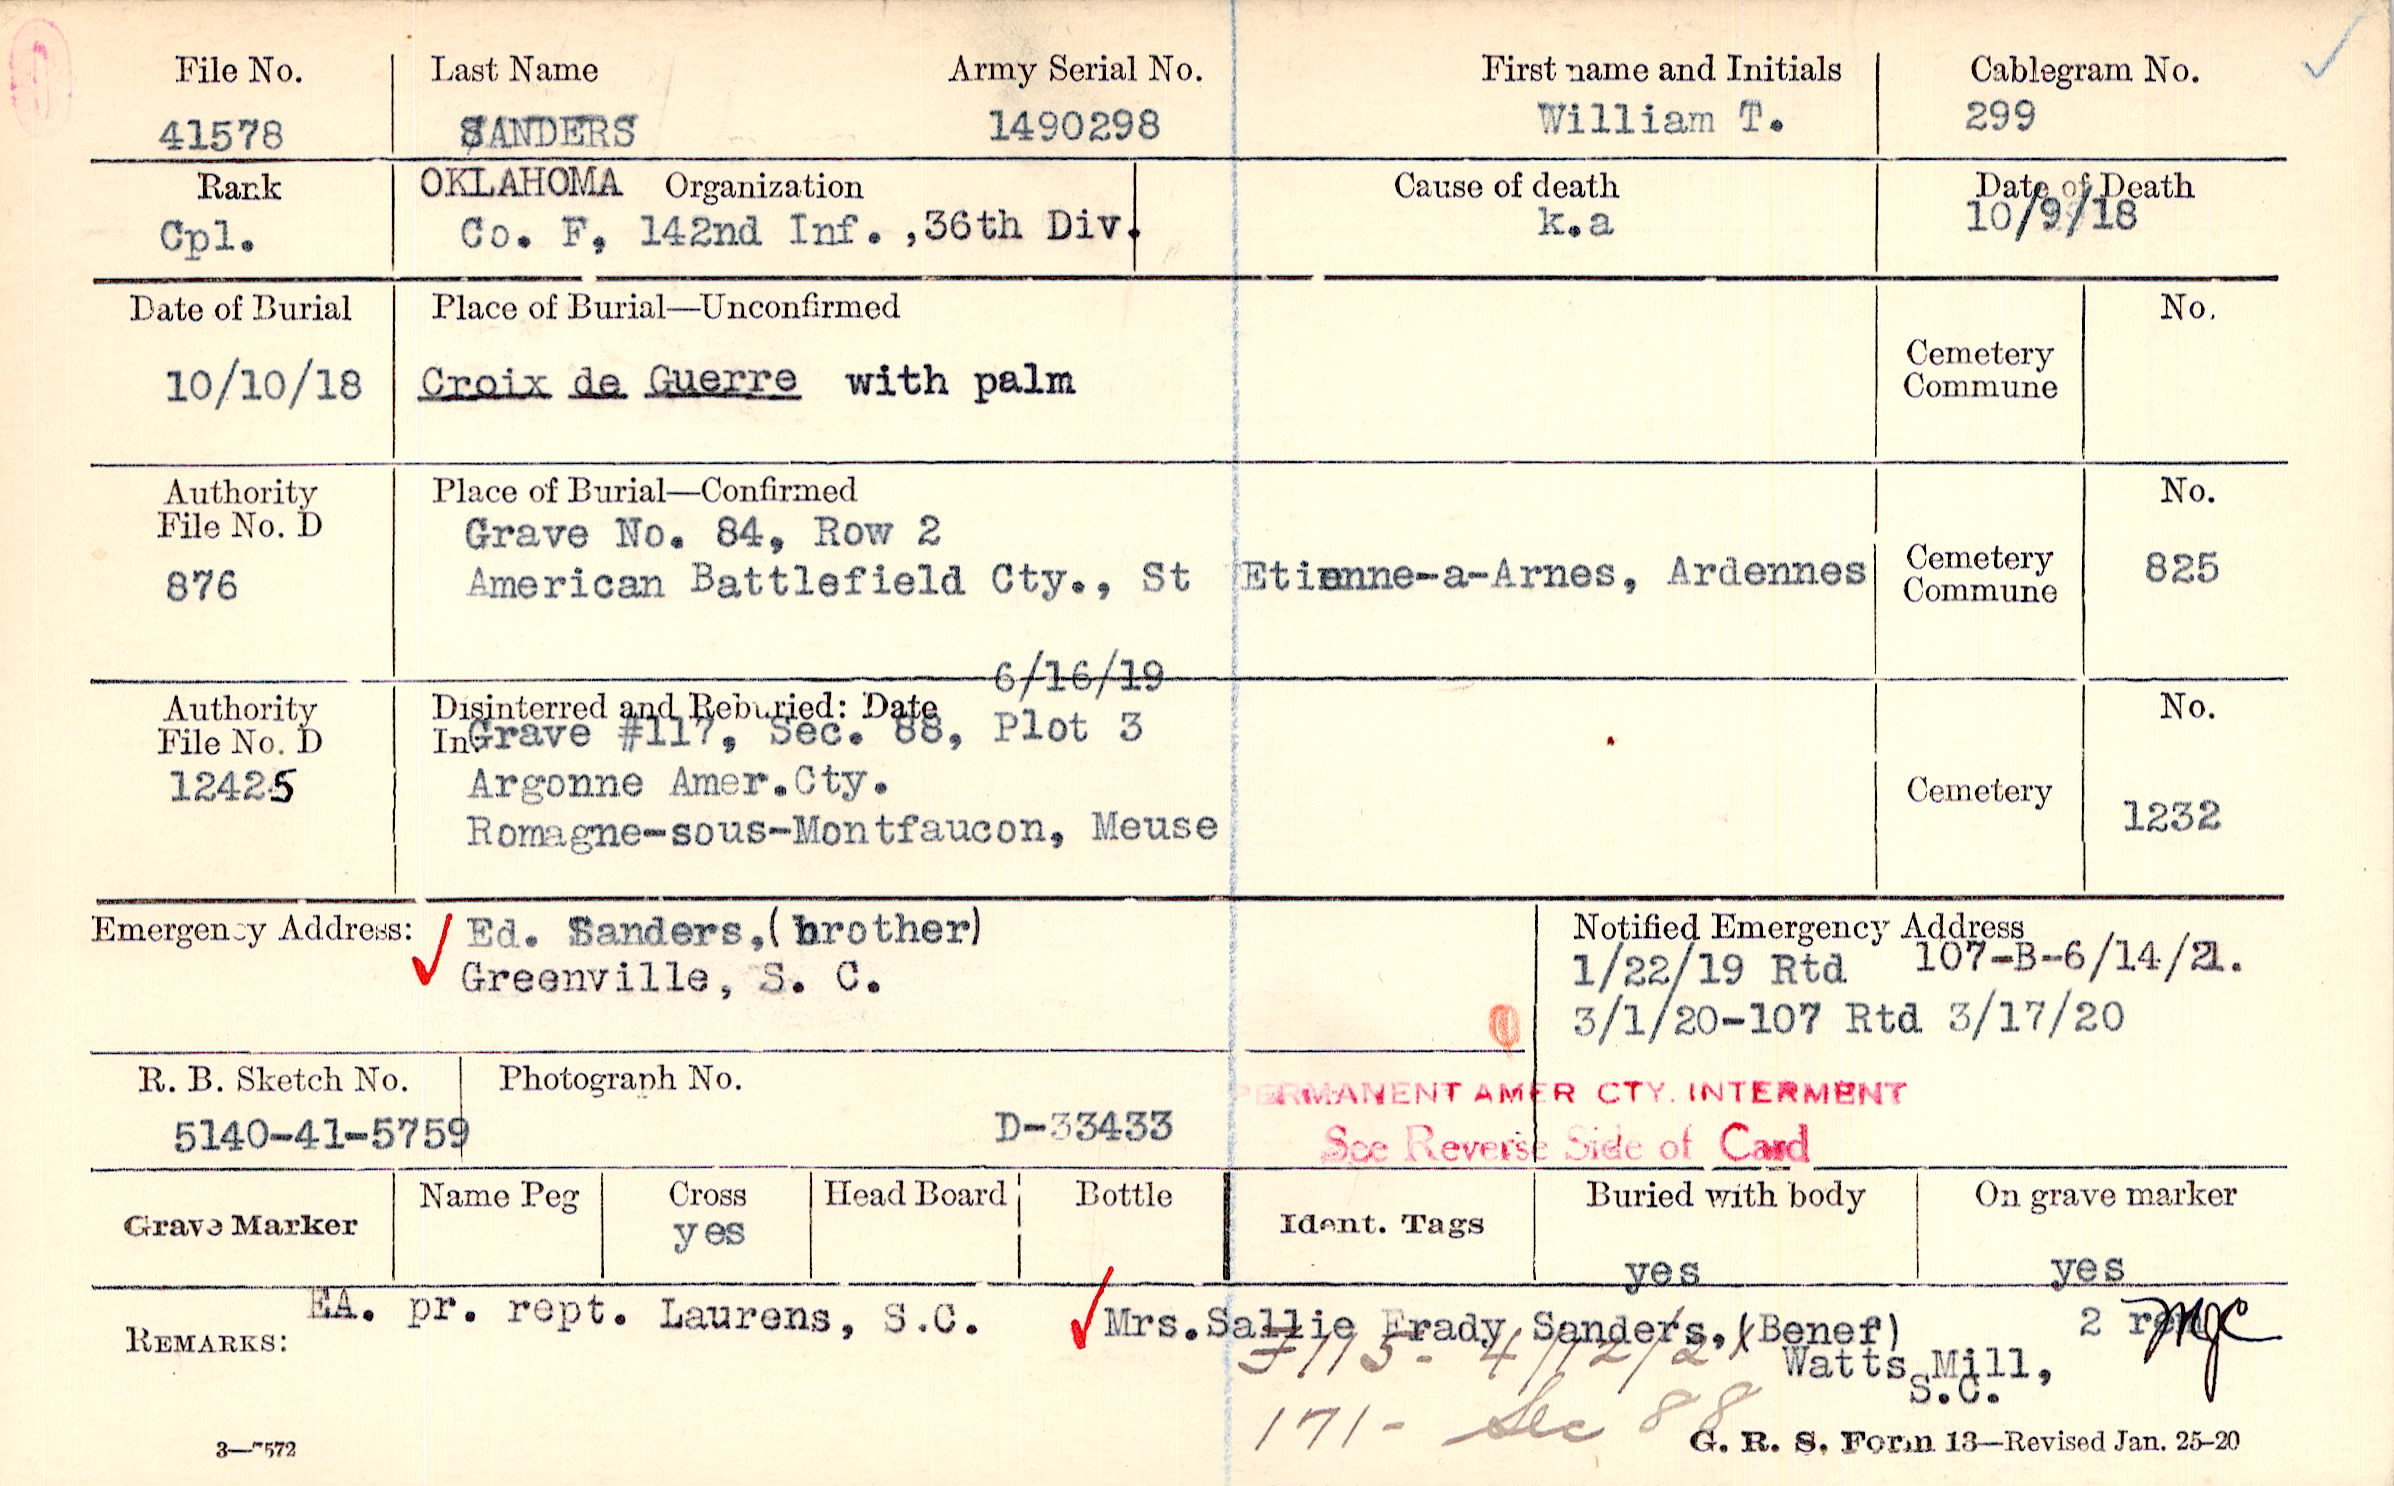 File No. Last Name Army Serial No. First name and Initials Cablegram No.
41578 SANDERS 1490298 William T. 299
Rank OKLAHOMA Organization Cause of death Date of Death
Cpl. Co. F, 142nd Inf. ,36th Div. k.a 10/9/18
Date of Burial Place of Burial—Unconfirmed No.
10/10/18 Croix de Guerre with palm Cemetery
Commune
Authority Place of Burial—Confirmed No.
File No. D Grave No. 84, Row 2
876 American Battlefield Cty., St Etienne-a-Arnes, Ardennes Cemetery 825
Commune
6/16/19
Authority Disinterred and Reburied: Date No.
File No. D In: Grave #117, Sec. 88, Plot 3
12425 Argonne Amer.Cty. Cemetery
Romagne-sous-Montfaucon, Meuse 1232
Emergency Address: Ed. Sanders,(brother) Notified Emergency Address
Greenville, S. C. 1/22/19 Rtd 107-B-6/14/21.
3/1/20-107 Rtd 3/17/20
R. B. Sketch No. Photograph No. PERMANENT AMER CTY. INTERMENT
5140-41-5759 D-33433 See Reverse Side of Card
Grave Marker Name Peg Cross Head Board Bottle Ident. Tags Buried with body On grave marker
yes yes yes
REMARKS: EA. pr. rept. Laurens, S.C. Mrs.Sallie Brady Sanders,(Benef) 2
4/12/21 Watts Mill,
S.C.
171- Sec 88
3—7572 G. R. S. Form 13—Revised Jan. 25-20